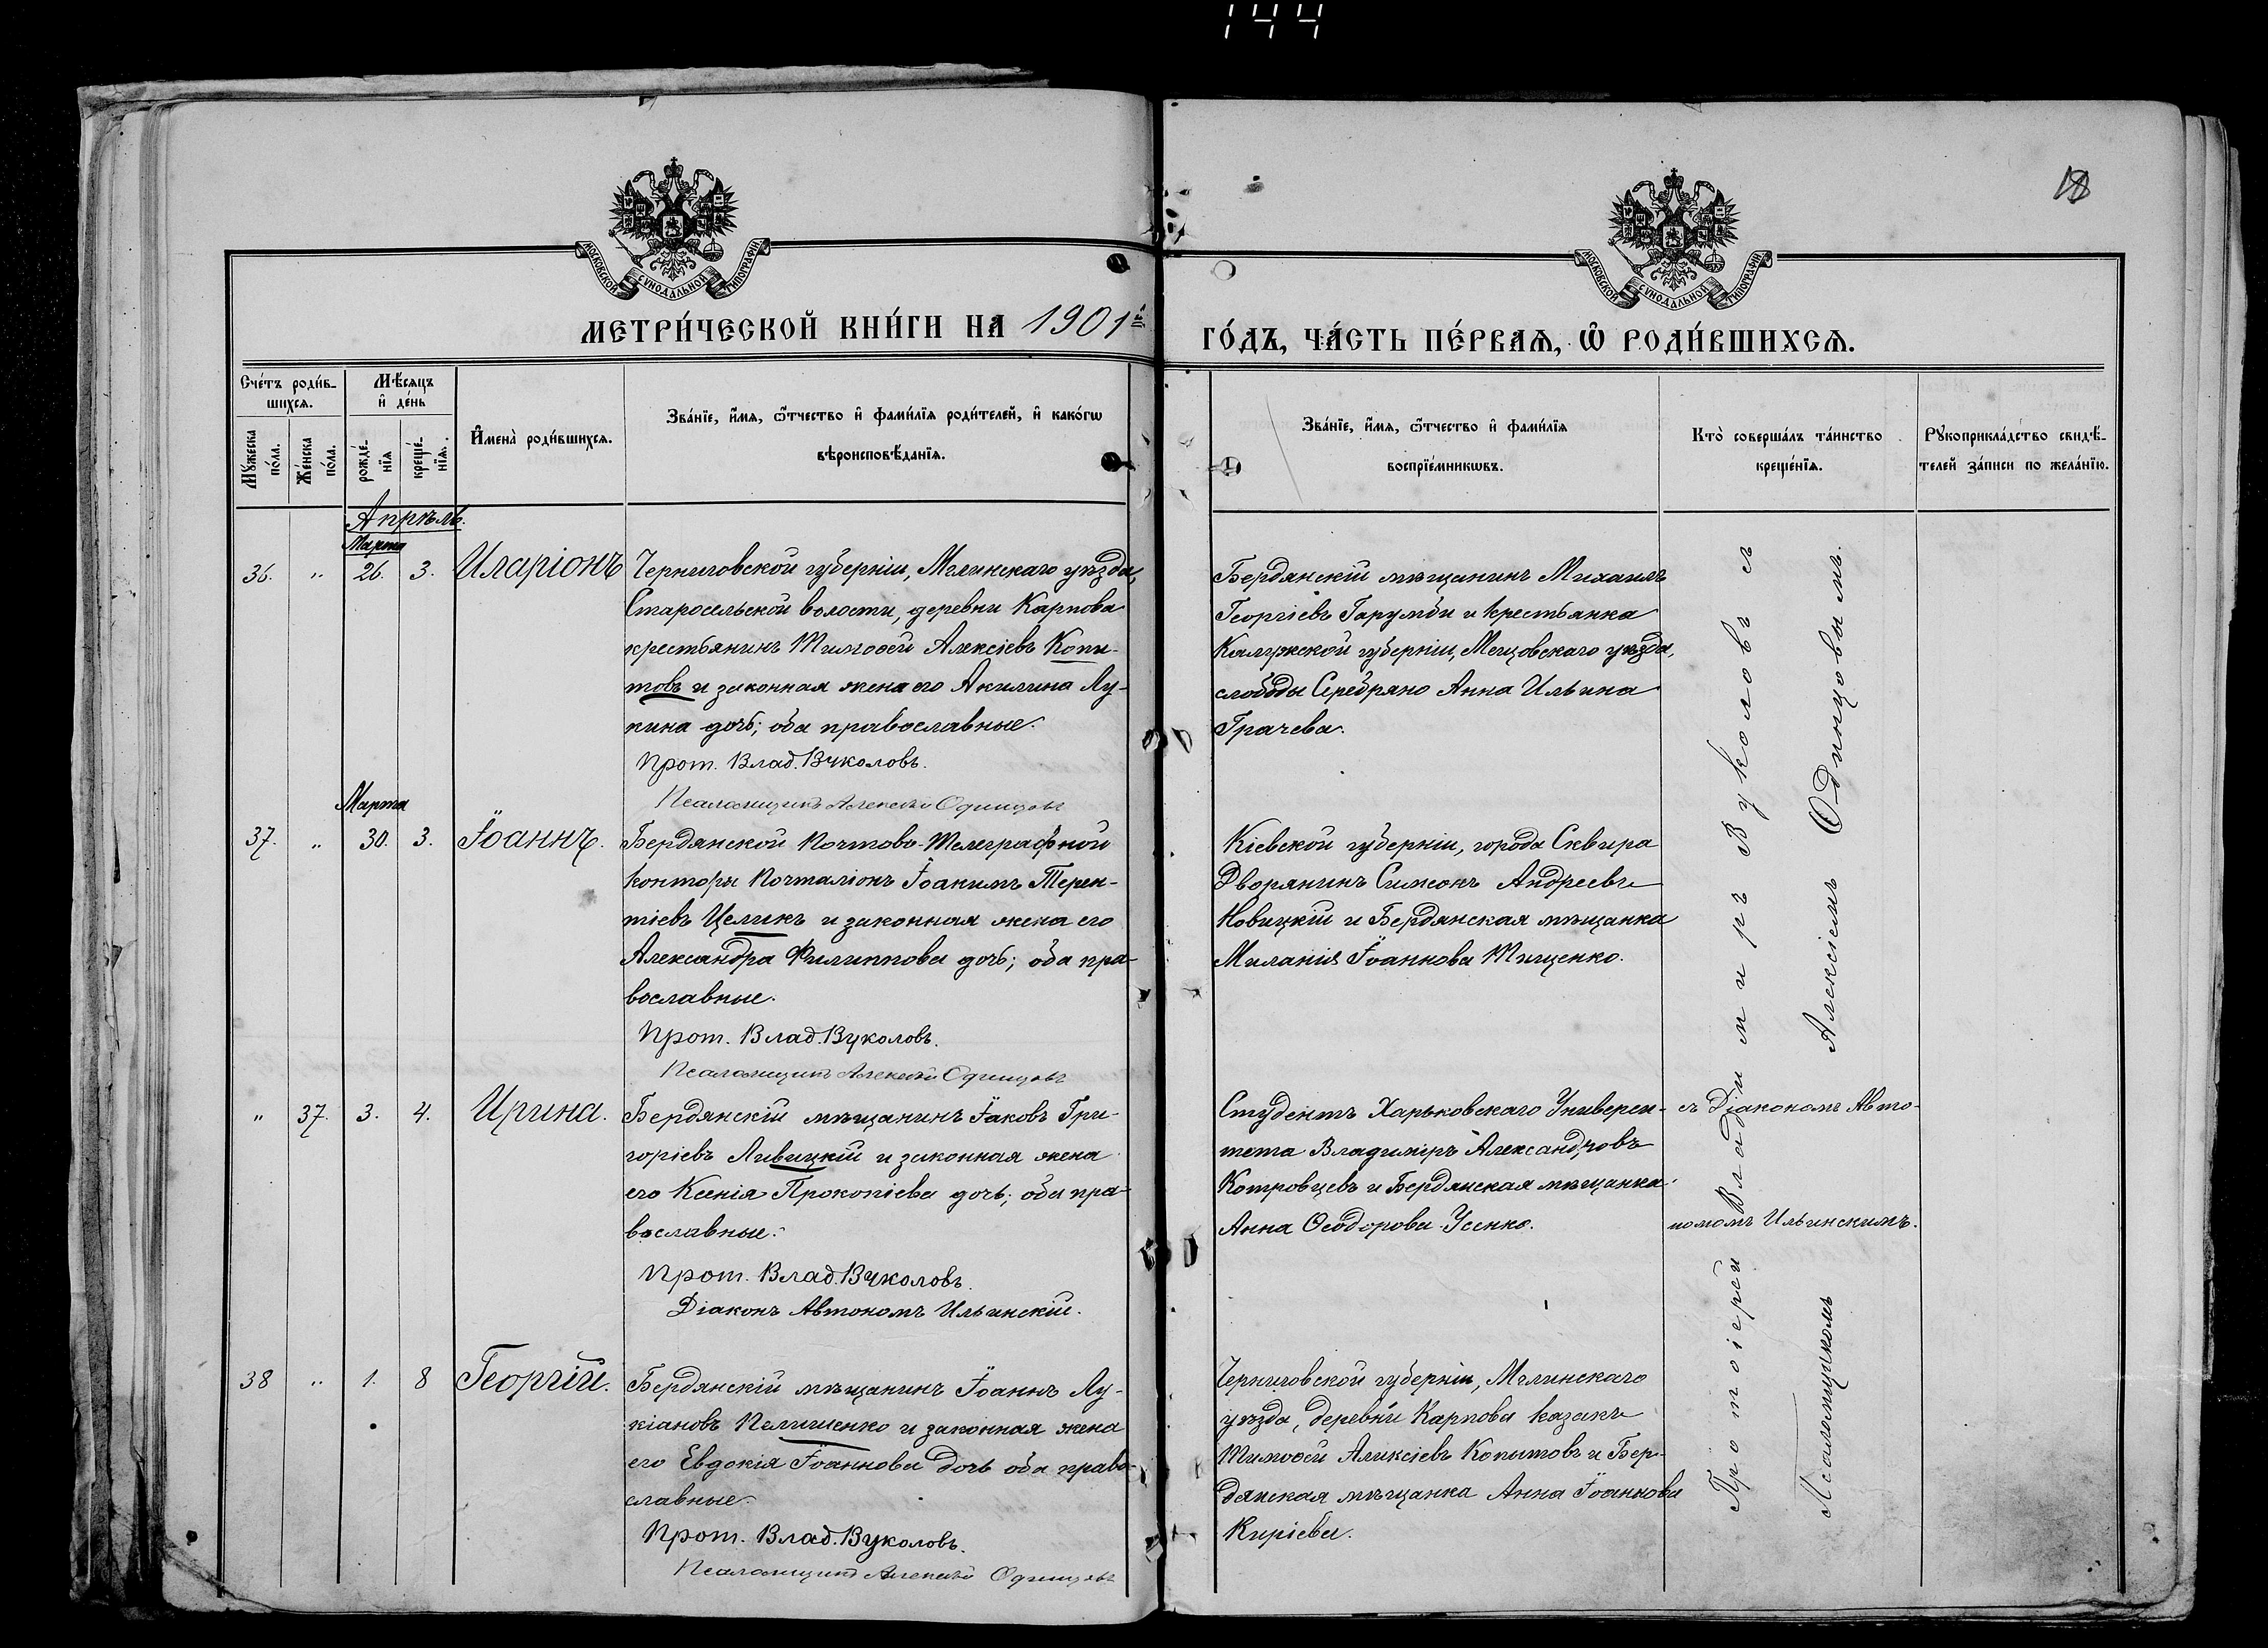 144
18
МОСКОВСКОЙ СУНОДАЛЬНОЙ ТИПОГРАФІИ
МОСКОВСКОЙ СУНОДАЛЬНОЙ ТИПОГРАФІИ
МЕТРИ́ЧЕСКОЙ КНИ́ГИ НА 1901й
ГО́ДЪ, ЧА́СТЬ ПЕ́РВАѦ, Ѽ РОДИ́ВШИХСѦ.
Сче́тъ роди́в-
шихсѧ.
Мѣ́сѧцъ
и҆ де́нь
Мꙋ́жеска
по́ла.
Же́нска
по́ла.
рожде́-
нїѧ
креще́-
нїѧ.
И҆мена̀ роди́вшихсѧ.
Зва́нїе, и҆́мѧ, ѻ҆́тчество и҆ фами́лїѧ роди́телей, и҆ како́гѡ
вѣроисповѣ́данїѧ.
Зва́нїе, и҆́мѧ, ѻ҆́тчество и҆ фами́лїѧ
воспрїе́мникѡвъ.
Кто̀ соверша́лъ та́инство
креще́нїѧ.
Рꙋкоприкла́дство свидѣ́-
телей за́писи по жела́нїю.
Апрѣль.
Марта
36. „ 26. 3. Иларіонъ
Черниговской губерніи, Мглинскаго уѣзда,
Старосельской волости, деревни Карпова
крестьянинъ Тимоѳей Алексіевъ Копи-
товъ и законная жена его Акилина Лу-
кина дочь; оба православные.
Прот. Влад. Вуколовъ.
Псаломщикъ Алексѣй Одинцовъ
Бердянскій мѣщанинъ Михаилъ
Георгіевъ Гарумби и крестьянка
Калужской губерніи, Мещовскаго уѣзда,
слободы Серебряно Анна Ильина
Грачева.
Марта
37. „ 30. 3. Іоаннъ.
Бердянской Почтово-Телеграфной
конторы Почталіонъ Іоакимъ Терен-
тіевъ Целикъ и законная жена его
Александра Филиппова дочь; оба пра-
вославные.
Прот. Влад. Вуколовъ.
Псаломщикъ Алексѣй Одинцовъ
Кіевской губерніи, города Сквира
Дворянинъ Симеонъ Андреевъ
Новицкій и Бердянская мѣщанка
Миланія Іоаннова Тищенко.
„ 37. 3. 4. Ирина.
Бердянскій мѣщанинъ Іаковъ Гри-
горіевъ Ливицкій и законная жена
его Ксенія Прокопіева дочь; оба пра-
вославные.
Прот. Влад. Вуколовъ.
Діаконъ Автономъ Ильинскій.
Студентъ Харьковскаго Универси-
тета Владиміръ Александровъ
Котровцевъ и Бердянская мѣщанка
Анна Ѳеодорова Усенко.
съ Діакономъ Авто-
номомъ Ильинскимъ.
38 „ 1. 8 Георгій.
Бердянскій мѣщанинъ Іоаннъ Лу-
кіановъ Пелишенко и законная жена
его Евдокія Іоаннова дочь оба право-
славные.
Прот. Влад. Вуколовъ.
Псаломщикъ Алексѣй Одинцовъ
Черниговской губерніи, Мглинскаго
уѣзда, деревни Карпова казакъ
Тимоѳей Алексіевъ Копытовъ и Бер-
дянская мѣщанка Анна Іоаннова
Киріева.
Протоіерей Владиміръ Вуколовъ съ
Псаломщикомъ Алексіемъ Одинцовымъ.